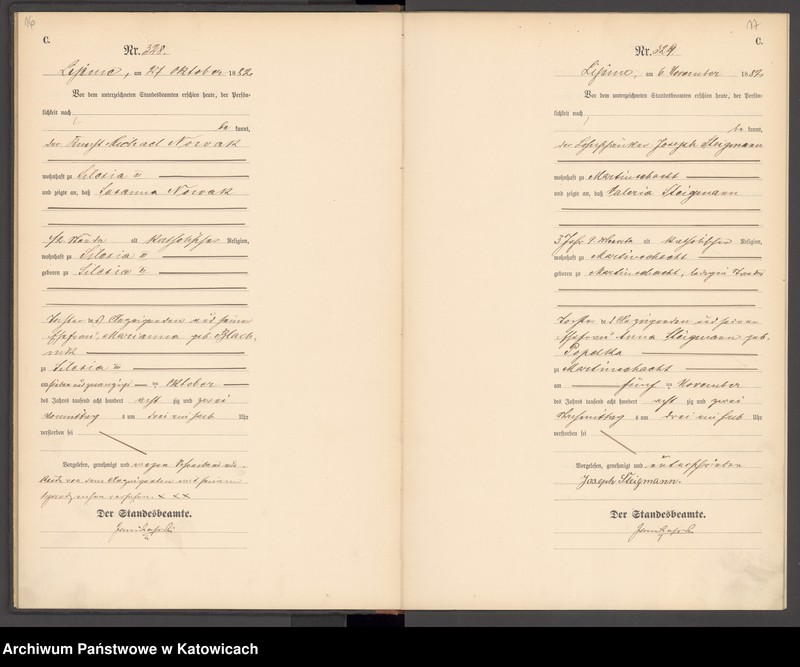 C.
Nr. 328.
am 27 Oktober 1882
Vor dem unterzeichneten Standesbeamten erschien heute, der Persön-
lichkeit nach
be kannt,
der Michael Nowak
wohnhaft zu Silesia
und zeigte an, daß Susanna Nowak
alt katholischer Religion,
wohnhaft zu Silesia
geboren zu Silesia
Tochter des Anzeigenden und seiner
Ehefrau Marianna geb.
zu Silesia
am Oktober
des Jahres tausend acht hundert acht zig und zwei
um drei ein halb Uhr
verstorben sei
Vorgelesen, genehmigt und wegen
von dem Anzeigenden mit seinem
Handzeichen versehen. x x x
Der Standesbeamte.
17
C.
Nr. 329.
am 6 November 1882
Vor dem unterzeichneten Standesbeamten erschien heute, der Persön-
lichkeit nach
be kannt,
der Joseph Steigmann
wohnhaft zu Martinschacht
und zeigte an, daß Valeria Steigmann
3 Jahr 9 Monate alt katholischer Religion,
wohnhaft zu Martinschacht
geboren zu Martinschacht, ledigen Standes
Tochter des Anzeigenden und seiner
Ehefrau Anna Steigmann geb.
zu Martinschacht
am fünf November
des Jahres tausend acht hundert acht zig und zwei
Nachmittag um drei ein halb Uhr
verstorben sei
Vorgelesen, genehmigt und unterschrieben
Joseph Steigmann.
Der Standesbeamte.
Archiwum Państwowe w Katowicach